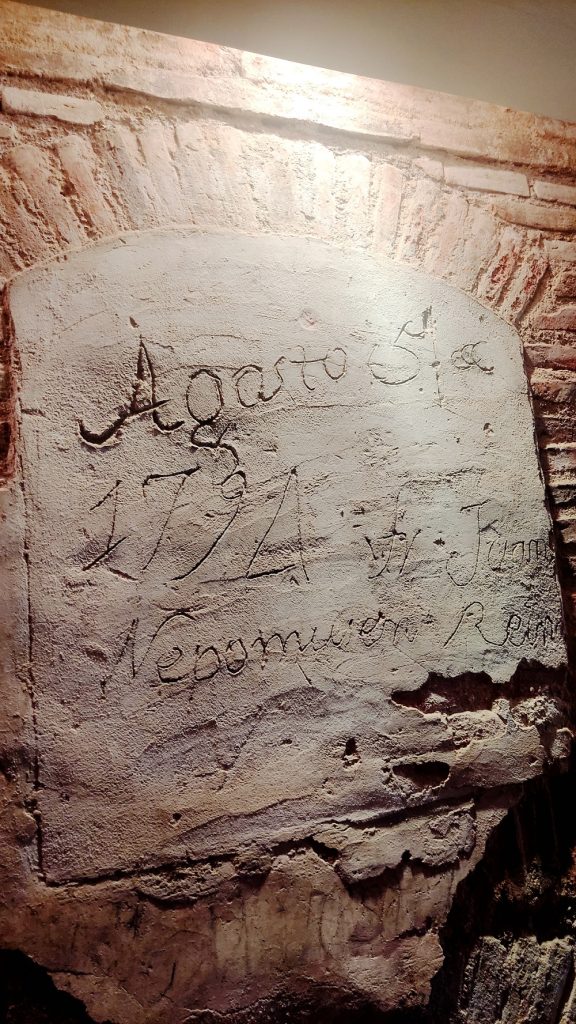 Agosto 51 a
1794 Fr Juan
Nepomucen° Rein